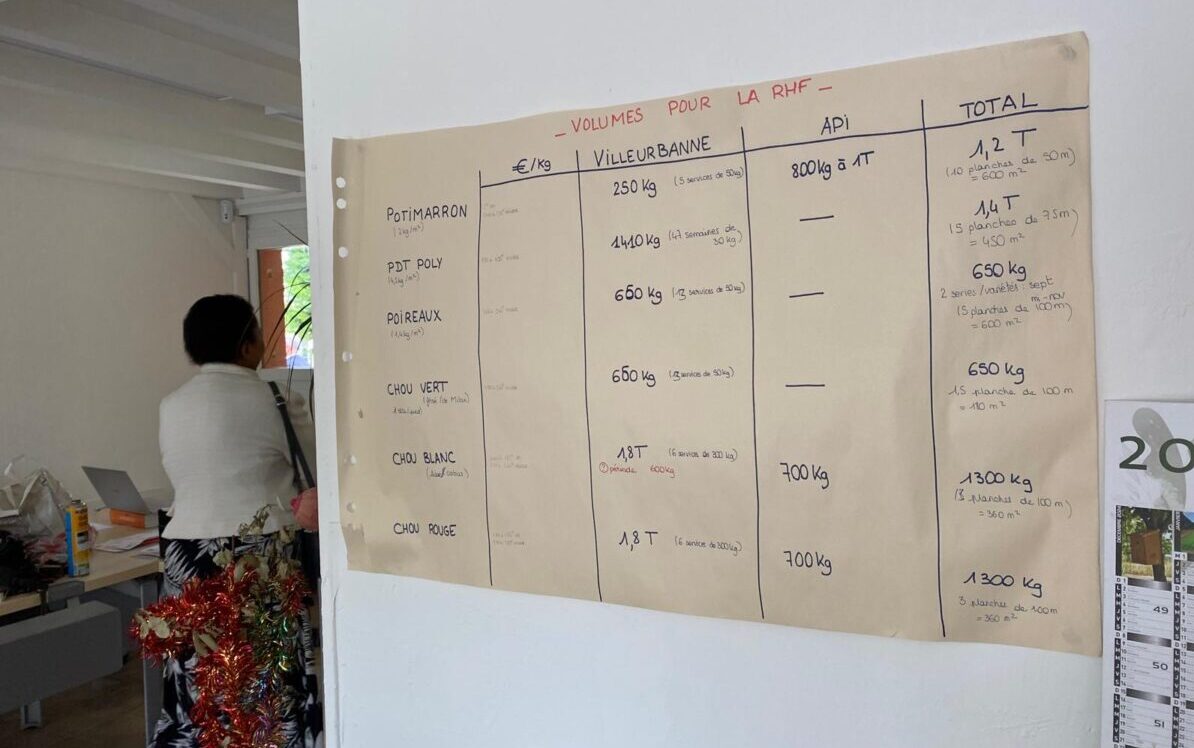 _ VOLUMES POUR LA RHF _
€/Kg VILLEURBANNE API TOTAL
POTIMARRON 250 Kg (5 services de 50kg) 800Kg à 1T 1,2 T
(10 planches de 50m)
= 600 m²
PDT POLY 1410 Kg (47 semaines de
30 kg) — 1,4T
(5 planches de 75m)
= 450 m²
POIREAUX
650 Kg (13 services de 50kg) — 650 kg
2 series/variétés : sept
(5 planches de 100m)
= 600 m²
CHOU VERT
650 Kg (13 services de 50kg) — 650 Kg
1,5 planche de 100 m
= 180 m²
CHOU BLANC
1,8T (6 services de 300 kg) 700Kg 1300 Kg
période 600Kg
(3 planches de 100m)
= 360 m²
CHOU ROUGE 1,8 T (6 service de 300kg) 700Kg 1300 Kg
3 planches de 100m
= 360 m²
20
49
50
51